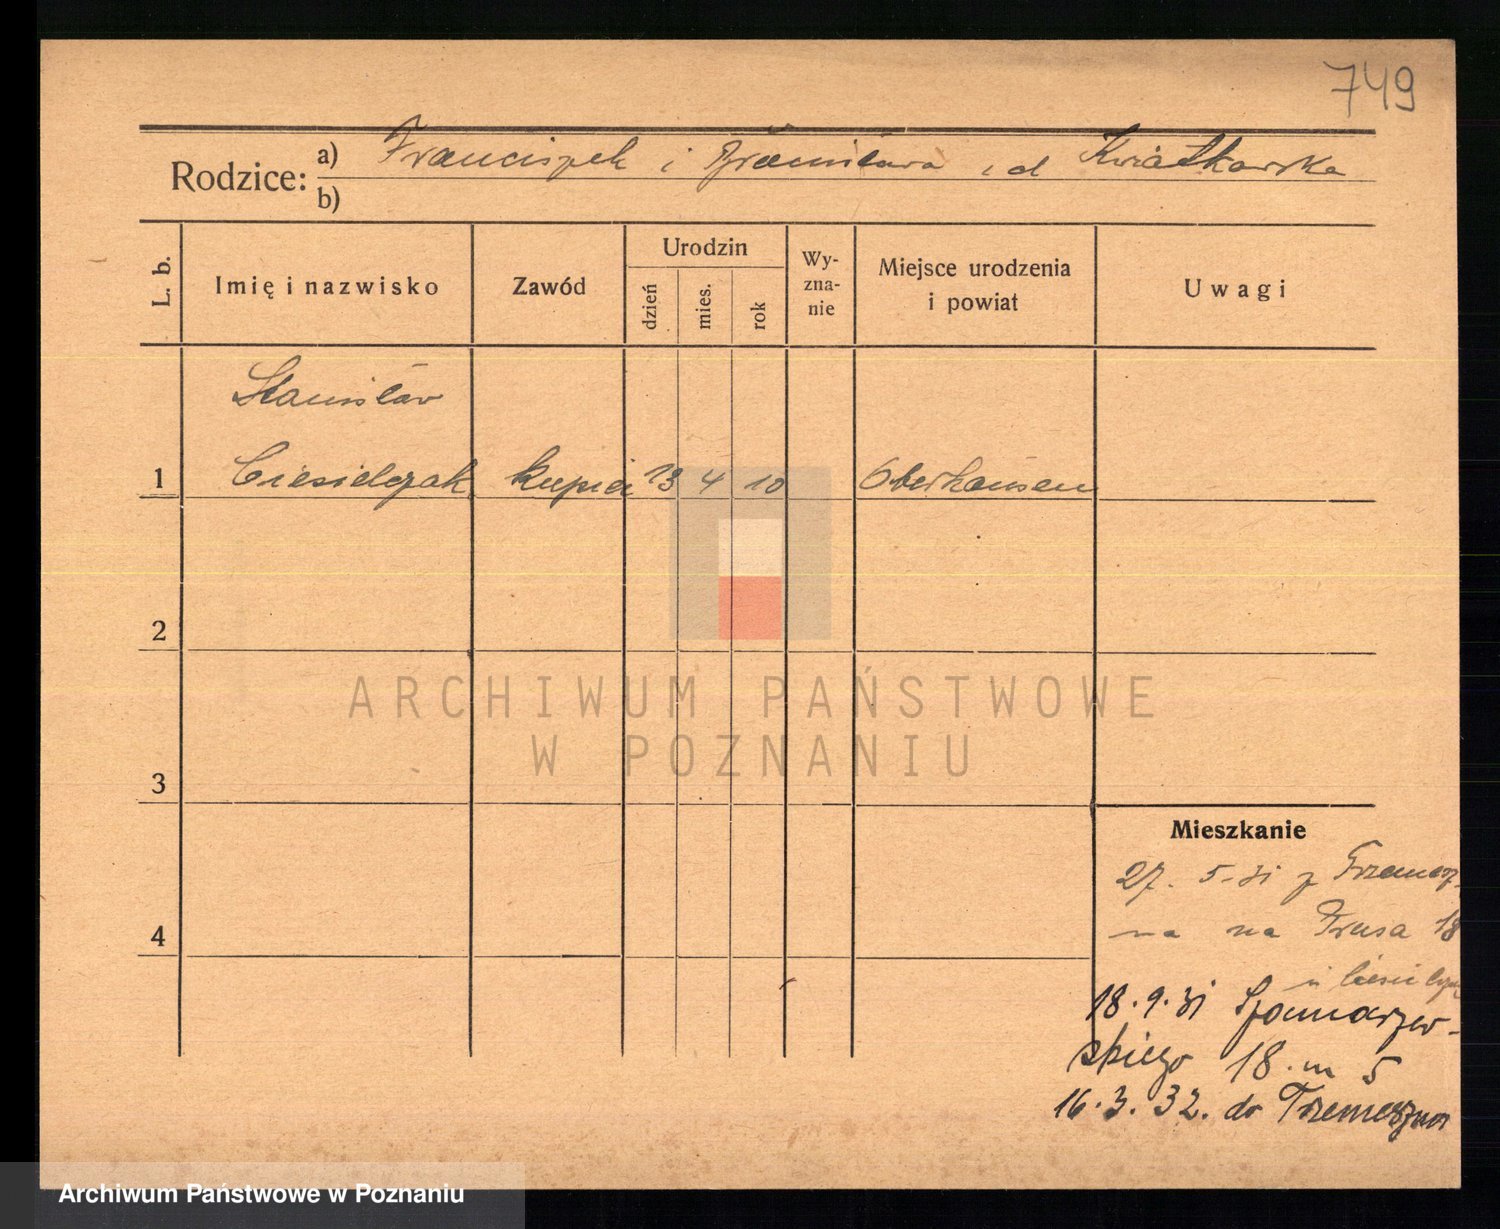 749
Rodzice: a) Franciszek i Bronisława i d Kwiatkowska
b)
L. b.
Imię i nazwisko
Zawód
Urodzin
dzień
mies.
rok
Wy-
zna-
nie
Miejsce urodzenia
i powiat
Uwagi
Stanisław
1 Ciesielczak kupiec 13 4 10 Oberhausen
2
3
4
ARCHIWUM PAŃSTWOWE
W POZNANIU
Mieszkanie
27. 5. 31 z Trzemesz-
na na Prusa 18
u
18. 9. 31 Szamarzew-
skiego 18. m 5
16. 3. 32. do Trzemeszna
Archiwum Państwowe w Poznaniu